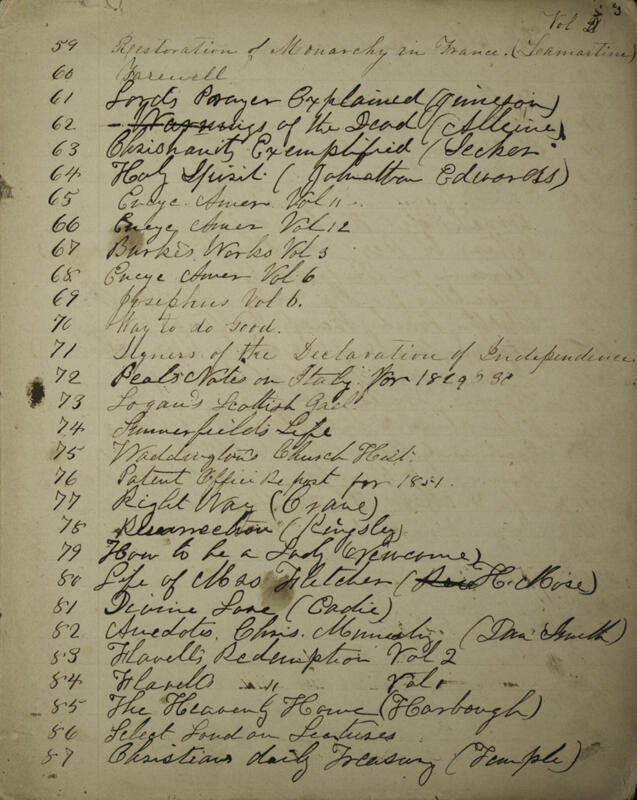 Vol 3
59 Restoration of Monarchy in France. (Lamartine)
60 Farewell
61 Lords Prayer Explained (Jimeson)
62 Warnings of the Dead (Alleine)
63 Chrisianity Exemplified (Secker
64 Holy Spirit (Johnathan Edwards)
65 Encyc. Amer. Vol 11
66 Encyc Amer Vol 12
67 Burkes Works Vol 3
68 Encyc Amer Vol 6
69 Josephus Vol 6.
70 Way to do Good.
71 Signers of the Declaration of Independence
72 Peals Notes on Italy for 1829 & 30
73 Logan's Scottish Gael
74 Summerfields Life
75 Waddington's Church Hist.
76 Patent Office Report for 1851.
77 Right Way (Crane)
78 Resurrection (Kingsley)
79 How to be a Lady (Newcome)
80 Life of Mrs Fletcher (H. Moore)
81 Divine Love (Eadie)
82 Anecdotes. Chris. Ministry. (Dan Smith)
83 Flavells Redemption Vol 2
84 Flavells " Vol 1
85 The Heavenly Home (Harbough)
86 Select London Lectures
87 Christians daily Treasury (Temple)